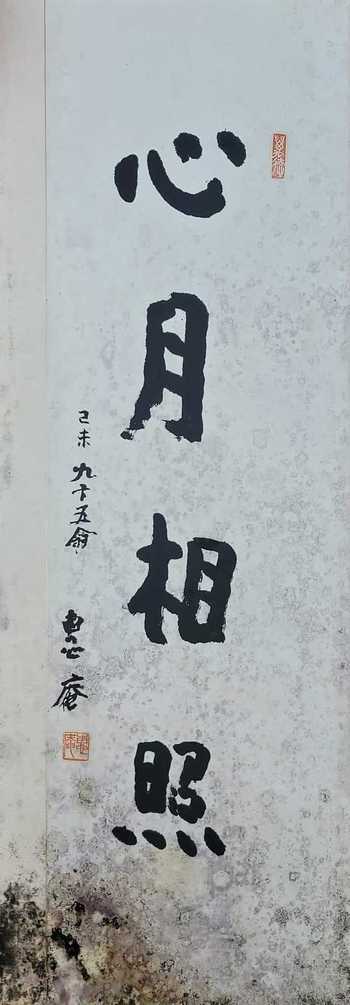 心月相照
己未 九十五翁 惠庵